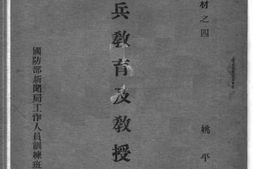 材之四
姚平
兵教育及教授
國防部新聞局工作人員訓練班